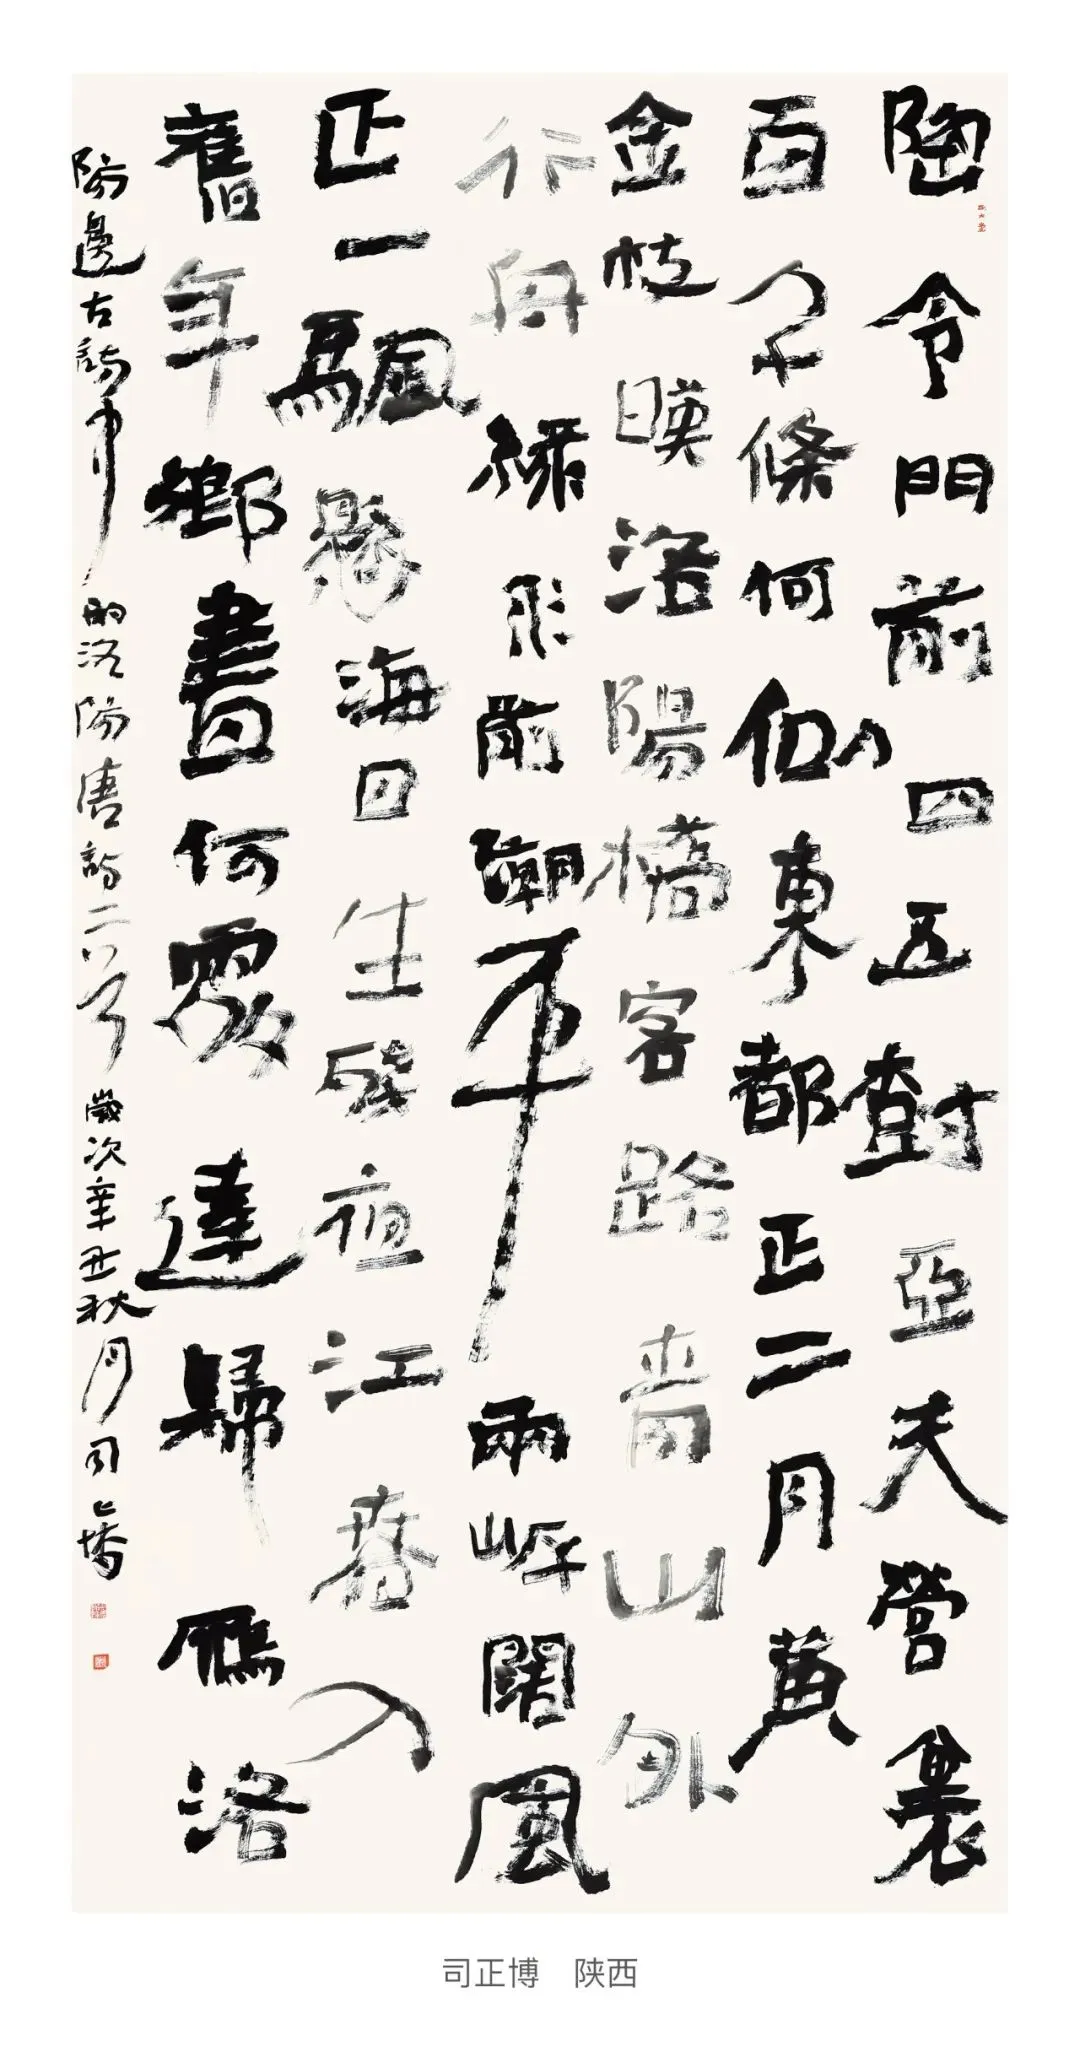 陶令門前四五樹亞夫營裏
百千條何似東都正二月黃
金枝暎洛陽橋客路青山外
行舟綠水前潮平兩岸闊風
正一颿懸海日生殘夜江春入
舊年鄉書何處達歸雁洛
陽邊古詩中的洛陽唐詩二首歲次辛丑秋月司正博
司正博 陕西